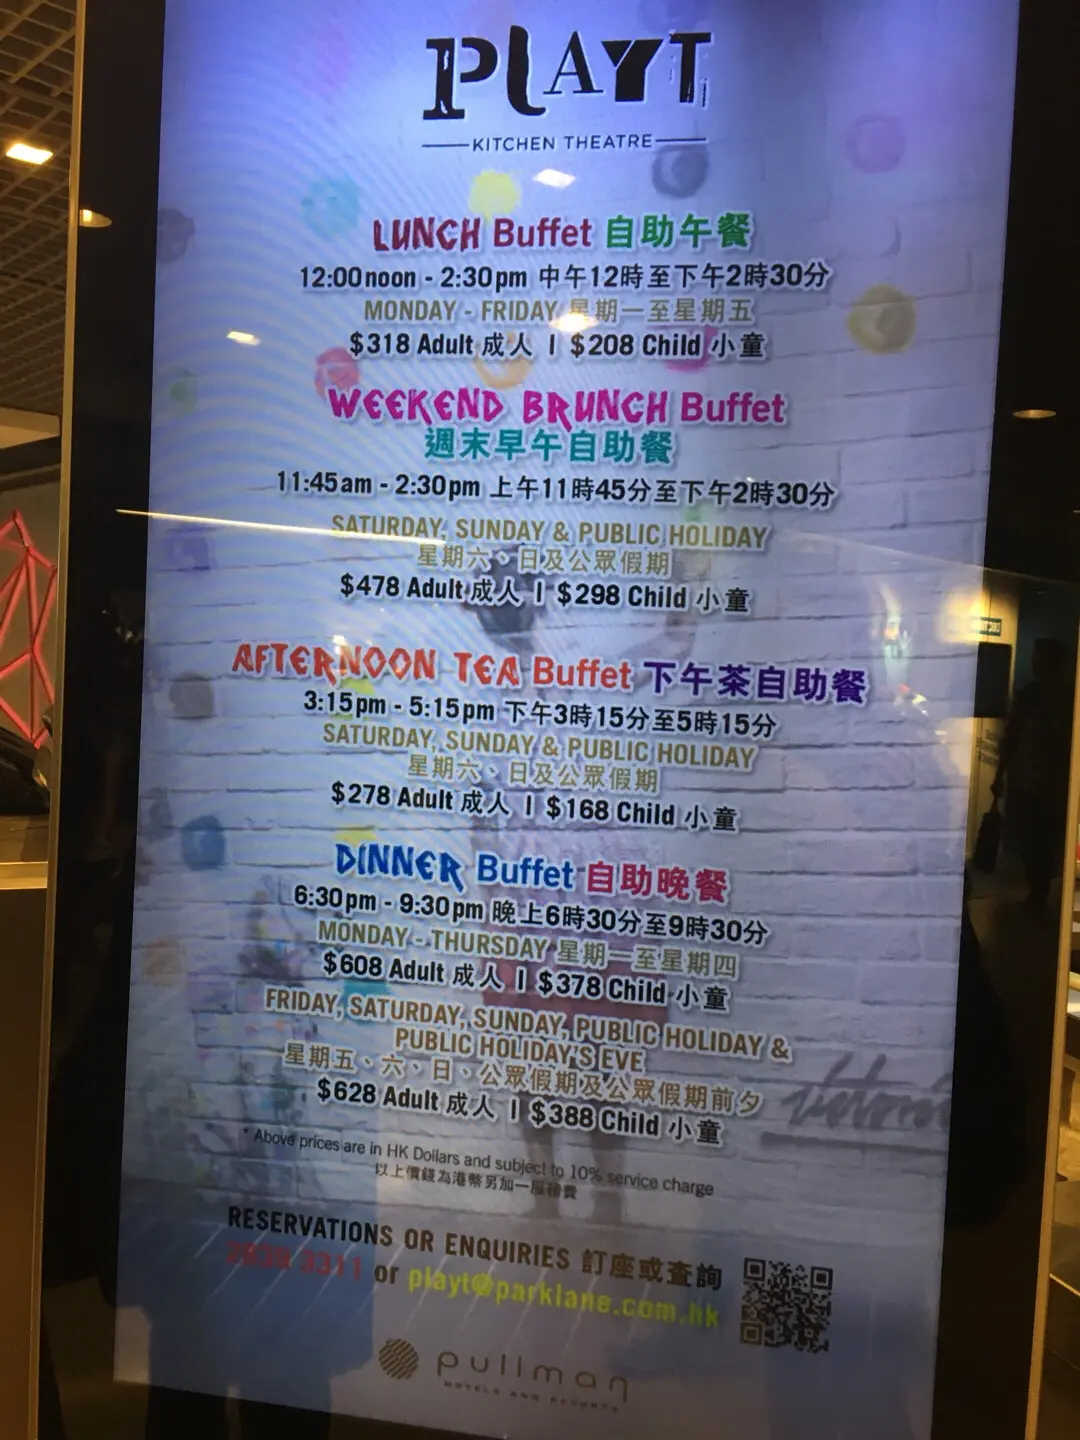 PLAYT
KITCHEN THEATRE
LUNCH Buffet 自助午餐
12:00noon - 2:30pm 中午12時至下午2時30分
MONDAY - FRIDAY 星期一至星期五
$318 Adult 成人 | $208 Child 小童
WEEKEND BRUNCH Buffet
週末早午自助餐
11:45am - 2:30pm 上午11時45分至下午2時30分
SATURDAY, SUNDAY & PUBLIC HOLIDAY
星期六、日及公眾假期
$478 Adult 成人 | $298 Child 小童
AFTERNOON TEA Buffet 下午茶自助餐
3:15pm - 5:15pm 下午3時15分至5時15分
SATURDAY, SUNDAY & PUBLIC HOLIDAY
星期六、日及公眾假期
$278 Adult 成人 | $168 Child 小童
DINNER Buffet 自助晚餐
6:30pm - 9:30pm 晚上6時30分至9時30分
MONDAY - THURSDAY 星期一至星期四
$608 Adult 成人 | $378 Child 小童
FRIDAY, SATURDAY, SUNDAY, PUBLIC HOLIDAY &
PUBLIC HOLIDAY'S EVE
星期五、六、日、公眾假期及公眾假期前夕
$628 Adult 成人 | $388 Child 小童
* Above prices are in HK Dollars and subject to 10% service charge
以上價錢為港幣另加一服務費
RESERVATIONS OR ENQUIRIES 訂座或查詢
2839 3311 or playt@parklane.com.hk
pullman
HOTELS AND RESORTS